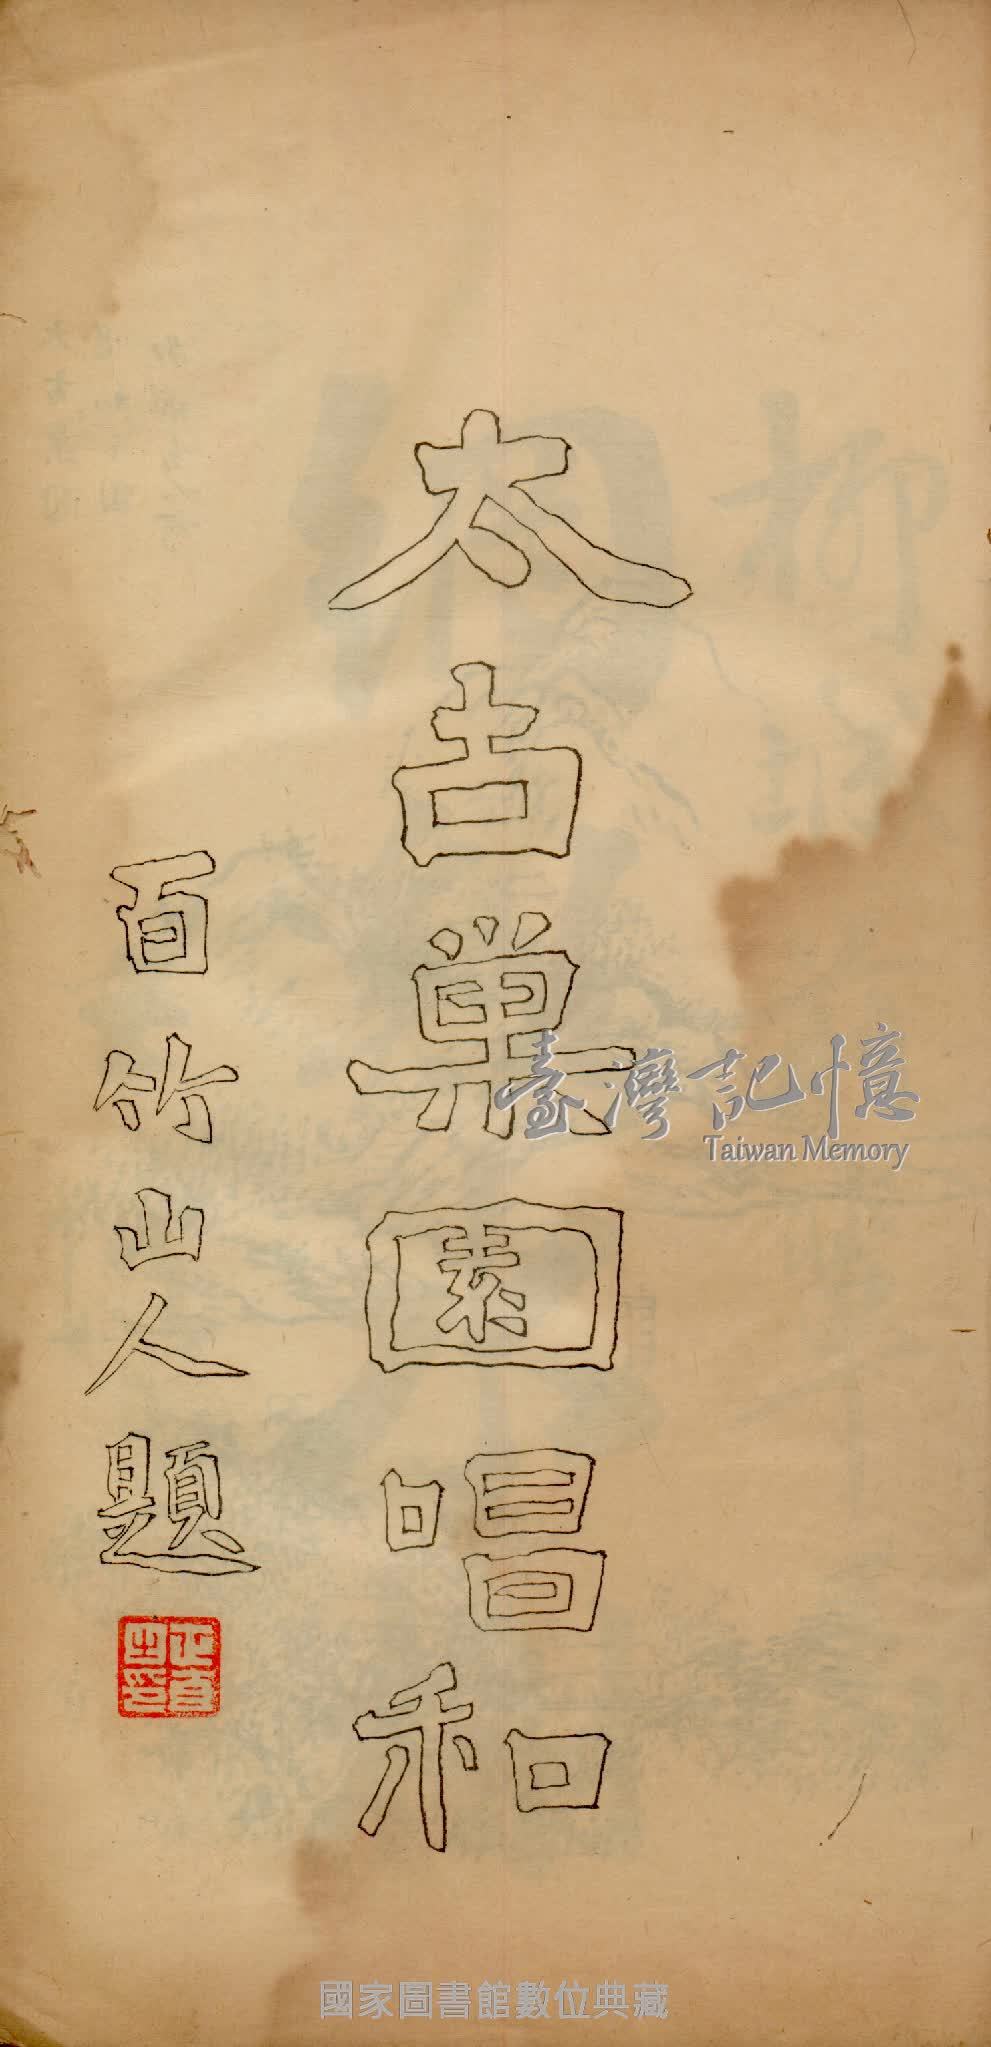 太古巢園唱和
百竹山人題
臺灣記憶
Taiwan Memory
國家圖書館數位典藏